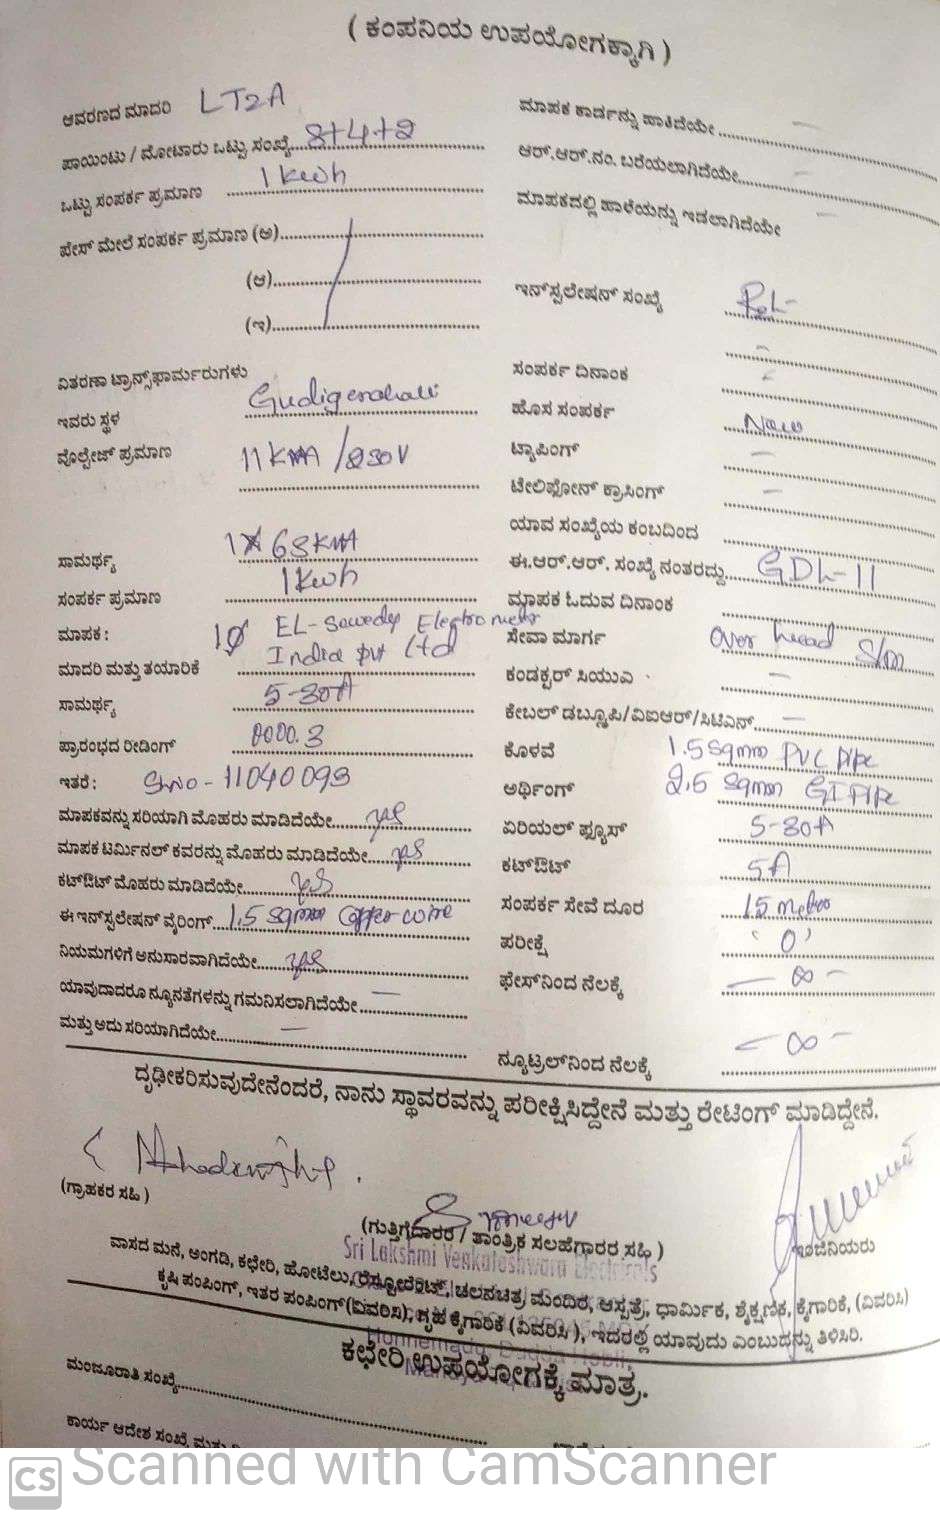 ( ಕಂಪನಿಯ ಉಪಯೋಗಕ್ಕಾಗಿ )
ಆವರಣದ ಮಾದರಿ LT2A
ಪಾಯಿಂಟು / ಮೋಟಾರು ಒಟ್ಟು ಸಂಖ್ಯೆ 8+4+2
ಒಟ್ಟು ಸಂಪರ್ಕ ಪ್ರಮಾಣ 1 kwh
ಪೇಸ್ ಮೇಲೆ ಸಂಪರ್ಕ ಪ್ರಮಾಣ (ಅ)
(ಆ)
(ಇ)
ವಿತರಣಾ ಟ್ರಾನ್ಸ್‌ಫಾರ್ಮರುಗಳು
ಇವರು ಸ್ಥಳ
ವೊಲ್ಟೇಜ್ ಪ್ರಮಾಣ 11 /230V
ಸಾಮರ್ಥ್ಯ 63
ಸಂಪರ್ಕ ಪ್ರಮಾಣ 1 kwh
ಮಾಪಕ : 1Ø EL-Sewedy Electrometer
ಮಾದರಿ ಮತ್ತು ತಯಾರಿಕೆ India pvt Ltd
ಸಾಮರ್ಥ್ಯ 5-30A
ಪ್ರಾರಂಭದ ರೀಡಿಂಗ್ 0000.3
ಇತರೆ : Sno - 11040093
ಮಾಪಕವನ್ನು ಸರಿಯಾಗಿ ಮೊಹರು ಮಾಡಿದೆಯೇ yes
ಮಾಪಕ ಟರ್ಮಿನಲ್ ಕವರನ್ನು ಮೊಹರು ಮಾಡಿದೆಯೇ yes
ಕಟ್‌ಔಟ್ ಮೊಹರು ಮಾಡಿದೆಯೇ yes
ಈ ಇನ್‌ಸ್ಟಲೇಷನ್ ವೈರಿಂಗ್ 1.5 sqmm Copper wire
ನಿಯಮಗಳಿಗೆ ಅನುಸಾರವಾಗಿದೆಯೇ yes
ಯಾವುದಾದರೂ ನ್ಯೂನತೆಗಳನ್ನು ಗಮನಿಸಲಾಗಿದೆಯೇ —
ಮತ್ತು ಅದು ಸರಿಯಾಗಿದೆಯೇ —
ಮಾಪಕ ಕಾರ್ಡನ್ನು ಹಾಕಿದೆಯೇ —
ಆರ್.ಆರ್.ನಂ. ಬರೆಯಲಾಗಿದೆಯೇ —
ಮಾಪಕದಲ್ಲಿ ಹಾಳೆಯನ್ನು ಇಡಲಾಗಿದೆಯೇ —
ಇನ್‌ಸ್ಟಲೇಷನ್ ಸಂಖ್ಯೆ
ಸಂಪರ್ಕ ದಿನಾಂಕ
ಹೊಸ ಸಂಪರ್ಕ New
ಟ್ಯಾಪಿಂಗ್ —
ಟೇಲಿಫೋನ್ ಕ್ರಾಸಿಂಗ್ —
ಯಾವ ಸಂಖ್ಯೆಯ ಕಂಬದಿಂದ
ಈ.ಆರ್.ಆರ್. ಸಂಖ್ಯೆ ನಂತರದ್ದು GDL-11
ಮಾಪಕ ಓದುವ ದಿನಾಂಕ
ಸೇವಾ ಮಾರ್ಗ Over head S/m
ಕಂಡಕ್ಟರ್ ಸಿಯುಎ —
ಕೇಬಲ್ ಡಬ್ಲೂಪಿ/ವಿಐಆರ್/ಸಿಟಿಎಸ್ —
ಕೊಳವೆ 1.5 sqmm PVC pipe
ಅರ್ಥಿಂಗ್ 2.5 sqmm GI pipe
ಏರಿಯಲ್ ಫ್ಯೂಸ್ 5-30A
ಕಟ್‌ಔಟ್ 5A
ಸಂಪರ್ಕ ಸೇವೆ ದೂರ 15 meter
ಪರೀಕ್ಷೆ ‘0’
ಫೇಸ್‌ನಿಂದ ನೆಲಕ್ಕೆ — ∞ —
ನ್ಯೂಟ್ರಲ್‌ನಿಂದ ನೆಲಕ್ಕೆ — ∞ —
ದೃಢೀಕರಿಸುವುದೇನೆಂದರೆ, ನಾನು ಸ್ಥಾವರವನ್ನು ಪರೀಕ್ಷಿಸಿದ್ದೇನೆ ಮತ್ತು ರೇಟಿಂಗ್ ಮಾಡಿದ್ದೇನೆ.
(ಗ್ರಾಹಕರ ಸಹಿ )
(ಗುತ್ತಿಗೆದಾರರ / ತಾಂತ್ರಿಕ ಸಲಹೆಗಾರರ ಸಹಿ )
ಇಂಜಿನಿಯರು
Sri Lakshmi Venkateshwara Electricals
ವಾಸದ ಮನೆ, ಅಂಗಡಿ, ಕಛೇರಿ, ಹೋಟೆಲು, ರೆಸ್ಟೋರೆಂಟ್, ಚಲನಚಿತ್ರ ಮಂದಿರ, ಆಸ್ಪತ್ರೆ, ಧಾರ್ಮಿಕ, ಶೈಕ್ಷಣಿಕ, ಕೈಗಾರಿಕೆ, (ವಿವರಿಸಿ)
ಕೃಷಿ ಪಂಪಿಂಗ್, ಇತರ ಪಂಪಿಂಗ್ (ವಿವರಿಸಿ), ಗೃಹ ಕೈಗಾರಿಕೆ (ವಿವರಿಸಿ ), ಇದರಲ್ಲಿ ಯಾವುದು ಎಂಬುದನ್ನು ತಿಳಿಸಿರಿ.
ಕಛೇರಿ ಉಪಯೋಗಕ್ಕೆ ಮಾತ್ರ.
ಮಂಜೂರಾತಿ ಸಂಖ್ಯೆ
ಕಾರ್ಯ ಆದೇಶ ಸಂಖ್ಯೆ
CS Scanned with CamScanner